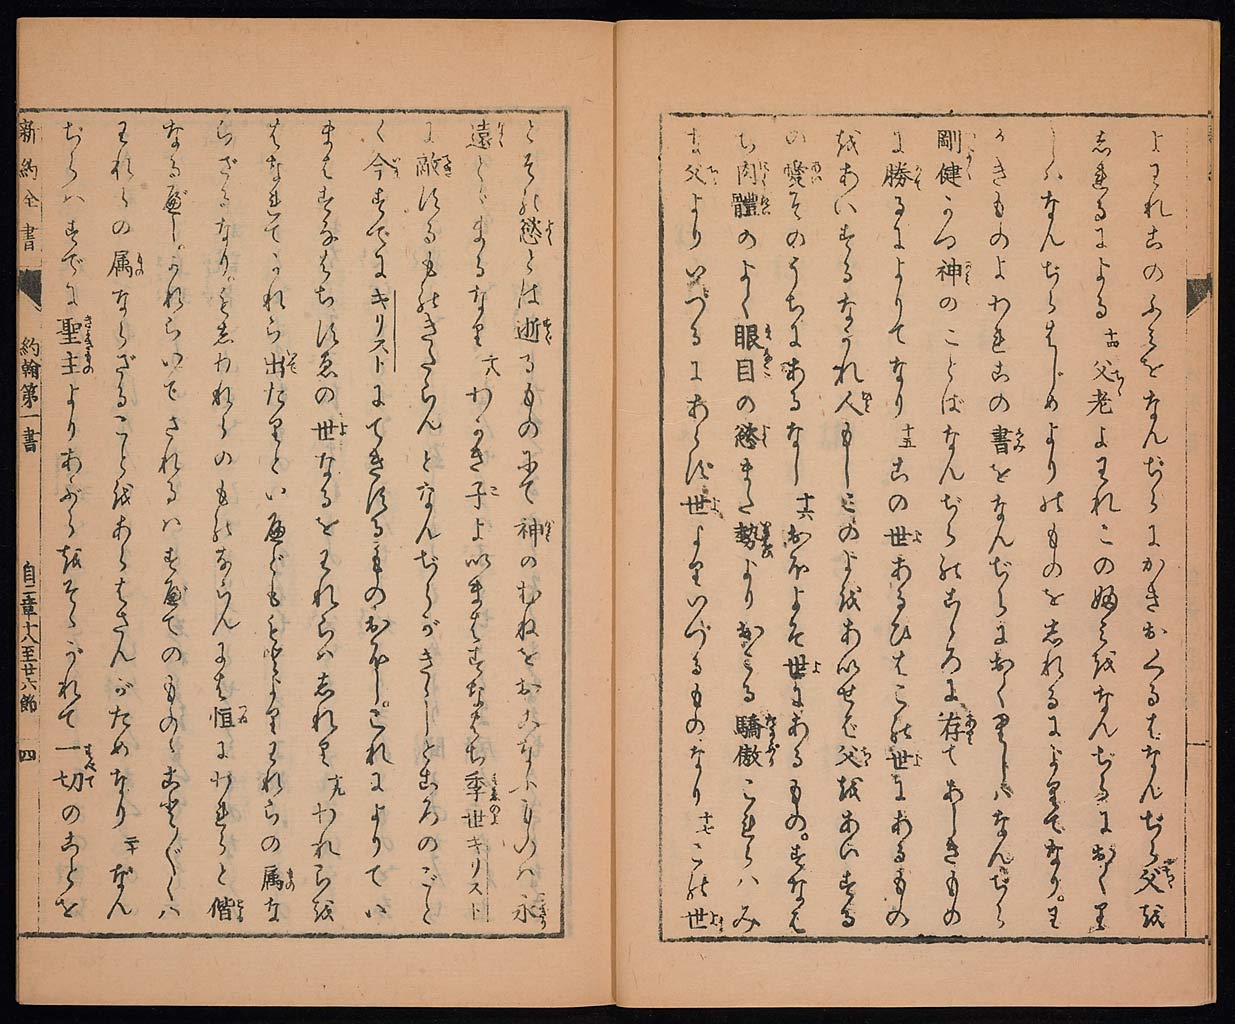 よわれこのふみをなんぢらにかきおくるはなんぢら父を
志れるによる十四父老よわれこの婦みをなんぢらにおくり
しハなんぢらはじめよりのものを志れるによりてなり。わ
かきものよわれこの書をなんぢらにおくりしハなんぢら
剛健かつ神のことばなんぢらのこゝろに存てあしきもの
に勝るによりてなり十五この世あるひはこの世にあるもの
をあいするなかれ人もしこのよをあいせバ父をあいする
の愛そのうちにあるなし十六おほよそ世にあるもの。すなは
ち肉體のよく眼目の慾また勢よりおこる驕傲これらハみ
な父よりいづるにあらず世よりいづるものなり十七この世
とその慾とは逝るものにて神のむねをおこなふものハ永
遠とゞまるなり十八わかき子よいまはすなはち季世キリスト
に敵するものきたらんとなんぢらがきゝしところのごと
く今すでにキリストにてきするものおほし。これによりてい
まはすなはちすゑの世なるをわれらハ志れり十九われらを
はなれてかれら出たりといへどももとよりわれらの属な
らざるなり。もし志われらのものならんには恒にわれらと偕
なるべし。かれらいでされるハすべてのものことごとくハ
われらの属ならざることをあらはさんがためなり二十なん
ぢらハすでに聖主よりあぶらをそゝがれて一切のことを
新約全書 約翰第一書 自二章十八至廿六節 四